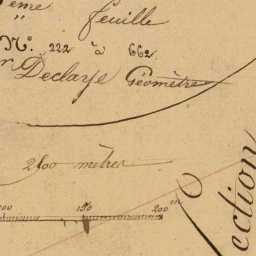 ème feuille
N.º 222 à 662
Declaye Géomètre
2400 mètres
100 150 200 m
ection